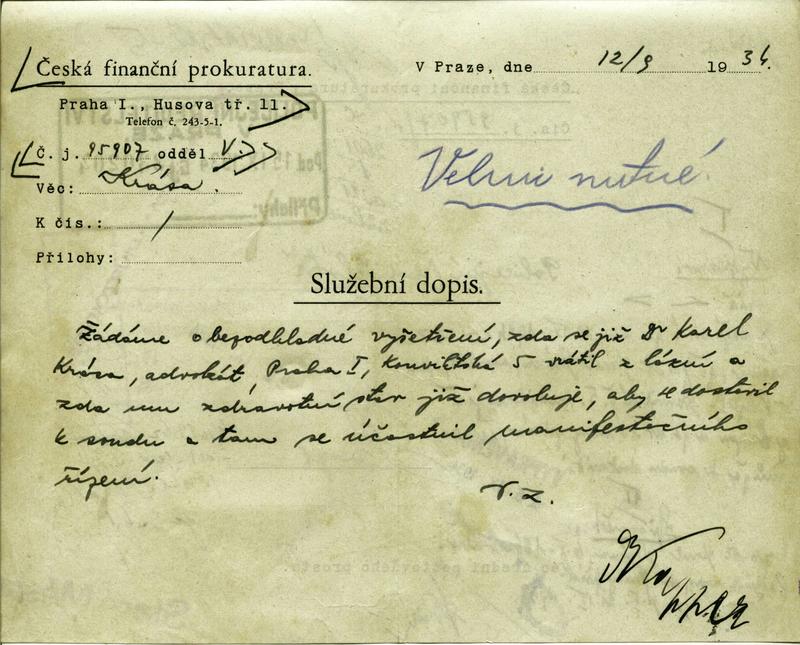 Česká finanční prokuratura.
V Praze, dne 12/9 1934.
Praha I., Husova tř. 11.
Telefon č. 243-5-1.
Č. j. 95907 odděl V.
Věc: Krása.
Velmi nutné.
K čís.: /
Přílohy:
Služební dopis.
Žádáme o bezodkladné vyšetření, zda se již Dr Karel
Krása, advokát, Praha I, Konviktská 5 vrátil z lázní a
zda mu zdravotní stav již dovoluje, aby se dostavil
k soudu a tam se účastnil manifestačního
řízení.
V. z.